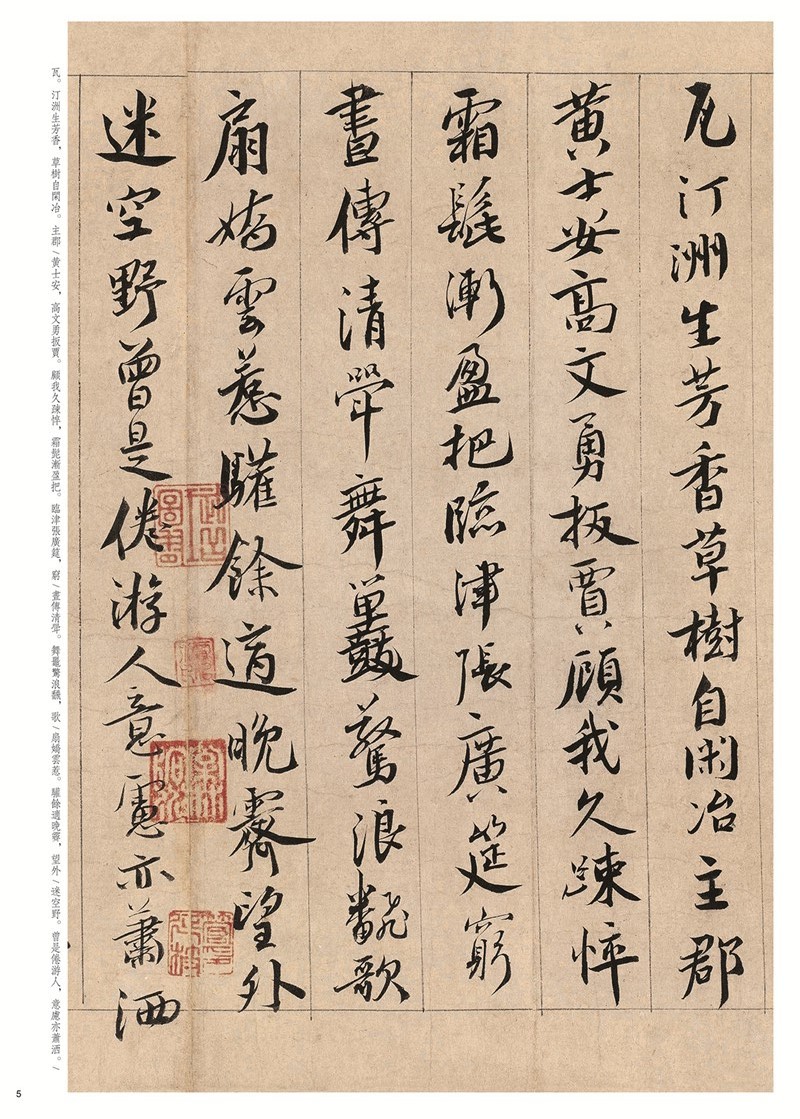 瓦汀洲生芳香草樹自閑冶主郡
黄士安高文勇扳賈顧我久踈悴
霜髭漸盈把臨津張廣筵窮
晝傳清斝舞鼉驚浪翻歌
扇嬌雲惹驩餘適晚霽望外
迷空野曾是倦游人意慮亦蕭洒
瓦。汀洲生芳香,草樹自閑冶。主郡/黄士安,高文勇扳賈。顧我久踈悴,霜髭漸盈把。臨津張廣筵,窮/晝傳清斝。舞鼉驚浪翻,歌/扇嬌雲惹。驩餘適晚霽,望外/迷空野。曾是倦游人,意慮亦蕭洒。/
5